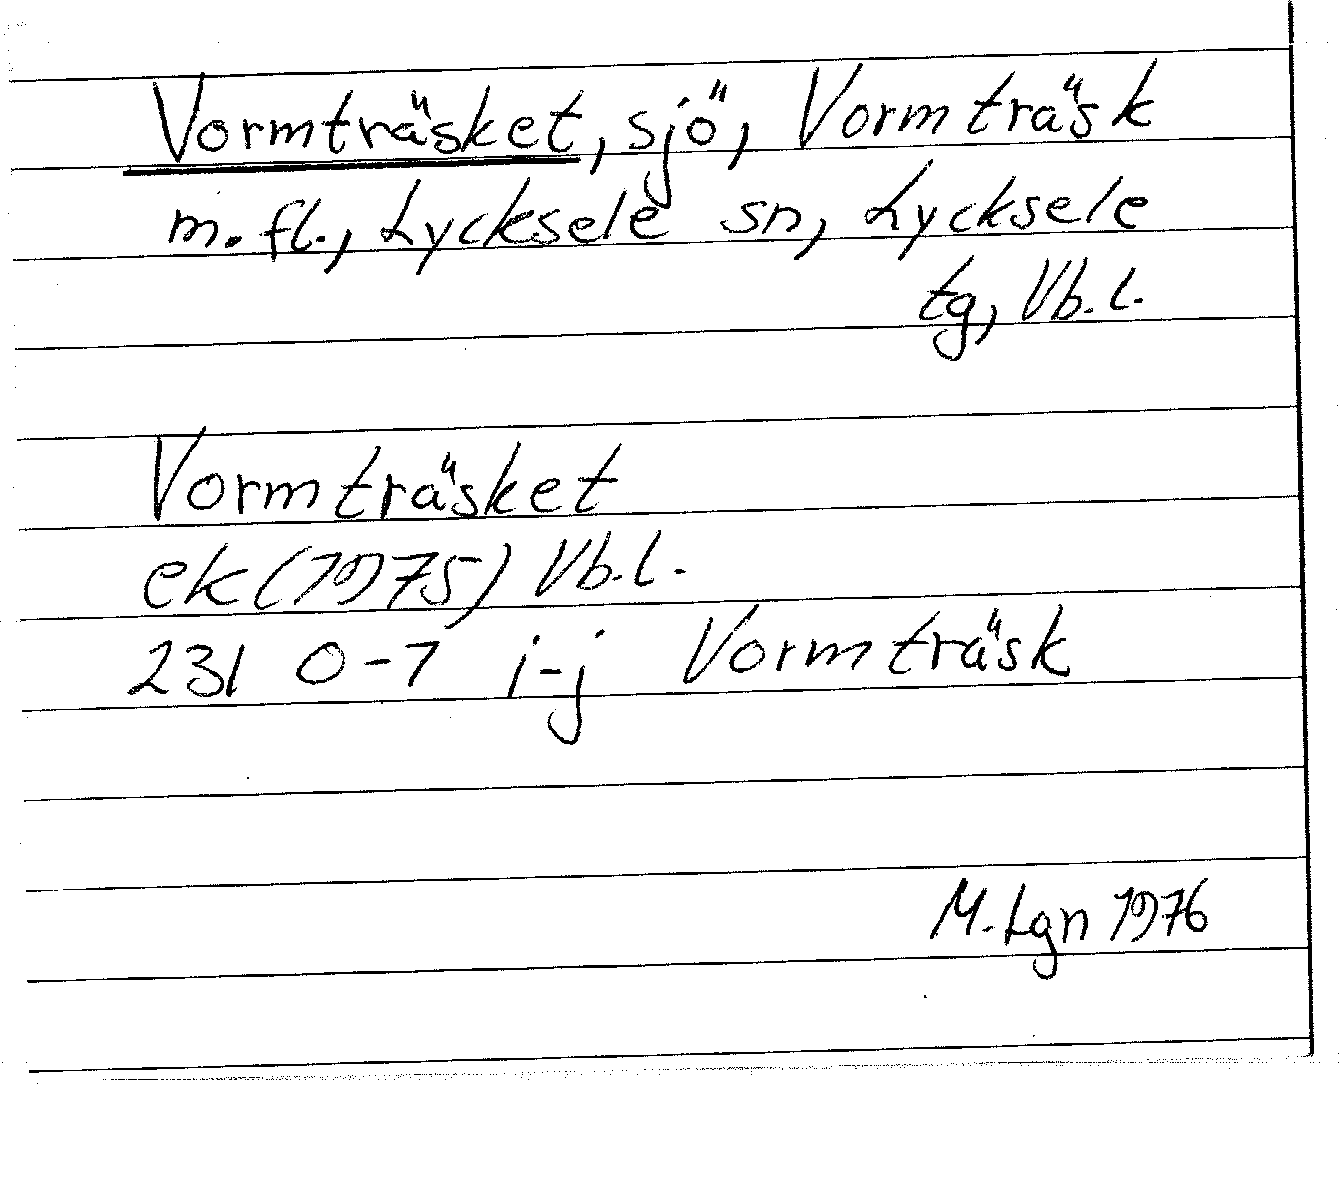 Vormträsket, sjö, Vormträsk
m. fl., Lycksele sn, Lycksele
tg, Vb. l.
Vormträsket
ek (1975) Vb. l.
231 0-7 i-j Vormträsk
M. Lgn 1976